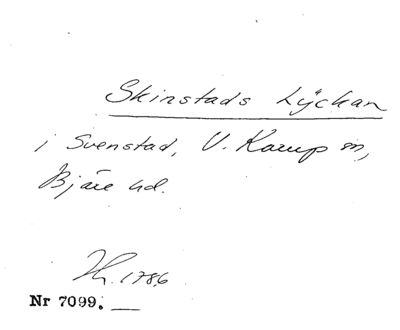 Skinstads Lÿckan
i Svenstad, V. Karup sn,
Bjäre hd.
Lh. 1786
Nr 7099.